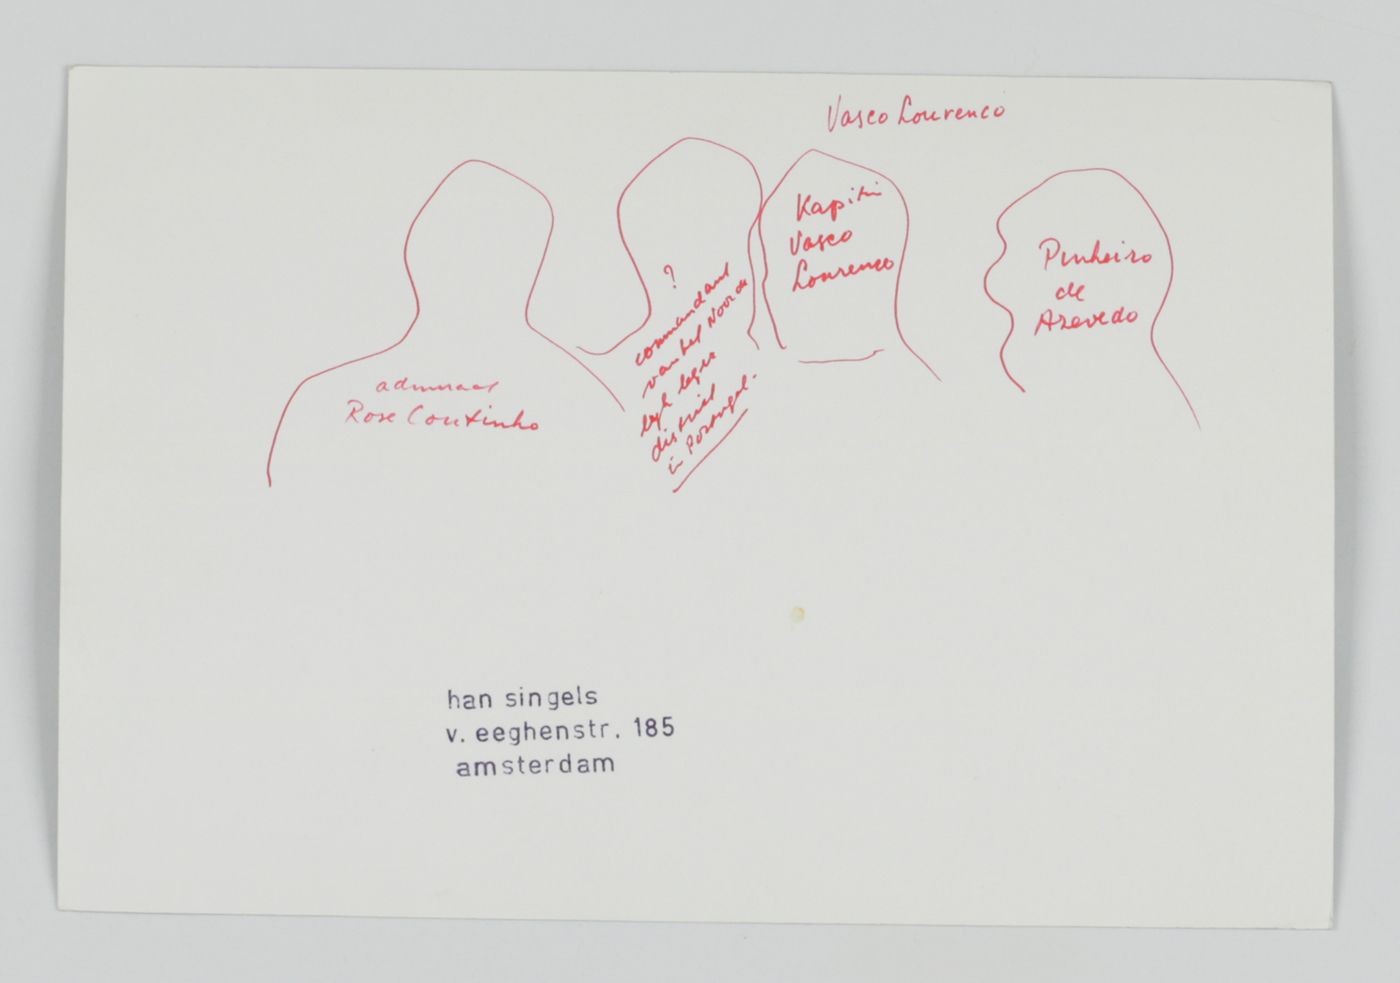 Vasco Lourenco
admiraal
Rose Coutinho
?
commandant
van het Noorde
legh leger
district
in Portugal.
Kapitein
Vasco
Lourenco
Pinheiro
de
Azevedo
han singels
v. eeghenstr. 185
amsterdam